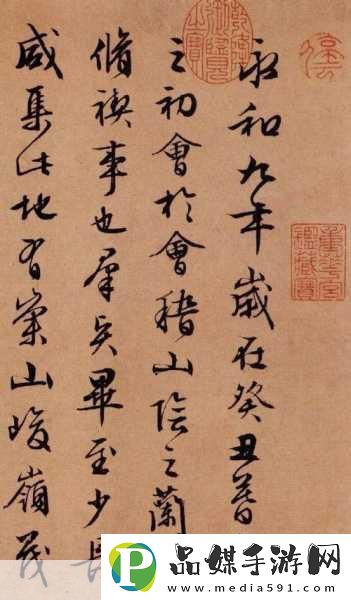 永和九年歲在癸丑暮
之初會於會稽山陰之蘭
脩禊事也羣賢畢至少長
咸集此地有崇山峻嶺茂
重華宮
鑑藏寶
品媒手游网
www.media591.com